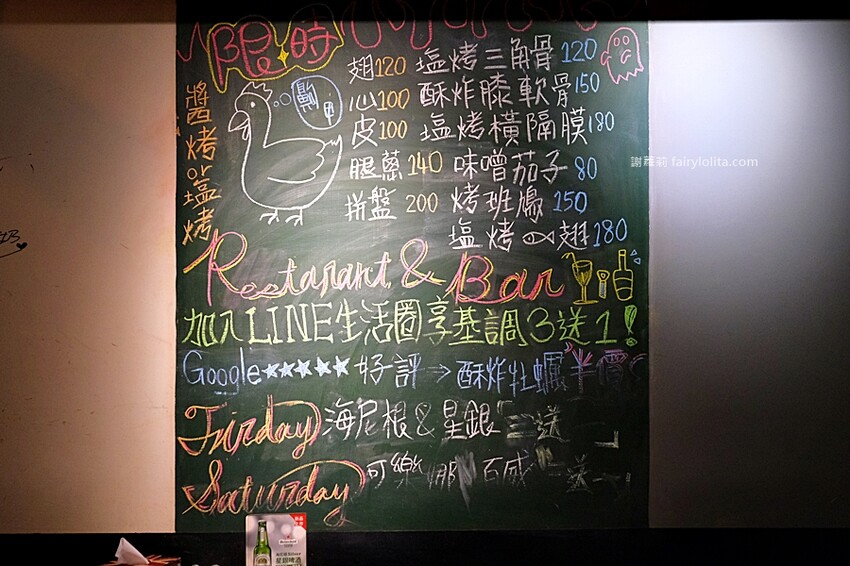 限時
醬烤or塩烤
翅120 塩烤三角骨120
心100 酥炸膝軟骨150
皮100 塩烤橫隔膜180
腿蔥140 味噌茄子80
拼盤200 烤班鳩150
塩烤 翅180
Restarant & Bar
加入LINE生活圈享基調3送1!
Google★★★★★好評→酥炸牡蠣半價
Firday 海尼根&星銀 三送一
Saturday 可樂娜 百威 送一
謝蘿莉 fairylolita.com
Heineken
星銀啤酒